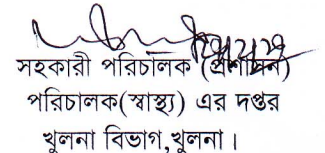 সহকারী পরিচালক (প্রশাসন)
পরিচালক(স্বাস্থ্য) এর দপ্তর
খুলনা বিভাগ,খুলনা।